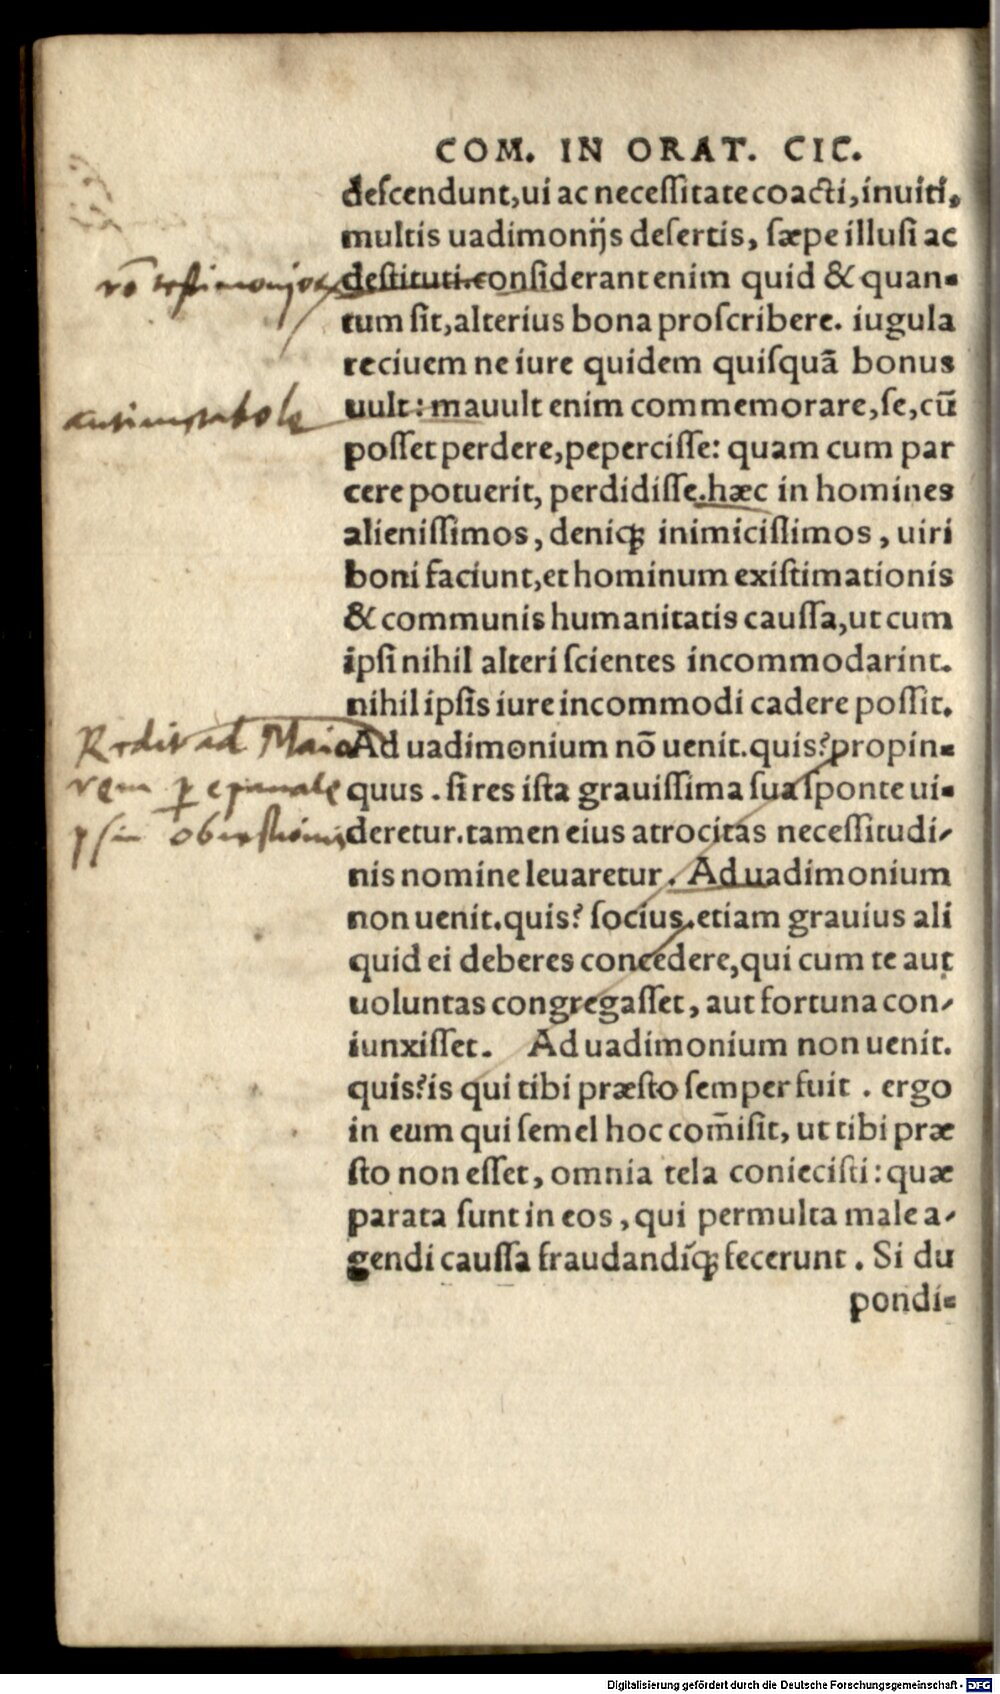 COM. IN ORAT. CIC.
deſcendunt,ui ac neceſſitate coacti,inuiti,
multis uadimonijs deſertis, ſæpe illuſi ac
rō testimonio
deſtituti.conſiderant enim quid & quan-
tum ſit,alterius bona proſcribere. iugula
re ciuem ne iure quidem quiſquā bonus
antimetabole
uult: mauult enim commemorare,ſe,cū
poſſet perdere,peperciſſe: quam cum par
cere potuerit, perdidiſſe.hæc in homines
alieniſſimos, deniqꝫ inimiciſſimos, uiri
boni faciunt,et hominum exiſtimationis
& communis humanitatis cauſſa,ut cum
ipſi nihil alteri ſcientes incommodarint.
nihil ipſis iure incommodi cadere poſſit.
Redit ad Maio
Ad uadimonium nō uenit.quis? propin-
rem p epanale
quus . ſi res iſta grauiſſima ſua ſponte ui-
psin
deretur.tamen eius atrocitas neceſſitudi-
nis nomine leuaretur. Ad uadimonium
non uenit.quis? ſocius.etiam grauius ali
quid ei deberes concedere,qui cum te aut
uoluntas congregaſſet, aut fortuna con-
iunxiſſet. Ad uadimonium non uenit.
quis? is qui tibi præſto ſemper fuit . ergo
in eum qui ſemel hoc com̄iſit, ut tibi præ
ſto non eſſet, omnia tela conieciſti: quæ
parata ſunt in eos, qui permulta male a-
gendi cauſſa fraudandiqꝫ fecerunt. Si du
pondi-
Digitalisierung gefördert durch die Deutsche Forschungsgemeinschaft - DFG